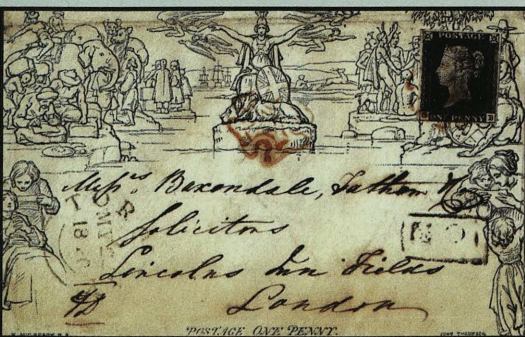 POSTAGE
ONE PENNY
Messrs. Baxendale, Tatham &
Solicitors
Lincolns Inn Fields
London
POSTAGE ONE PENNY.
W. MULREADY R.A.
JOHN THOMPSON